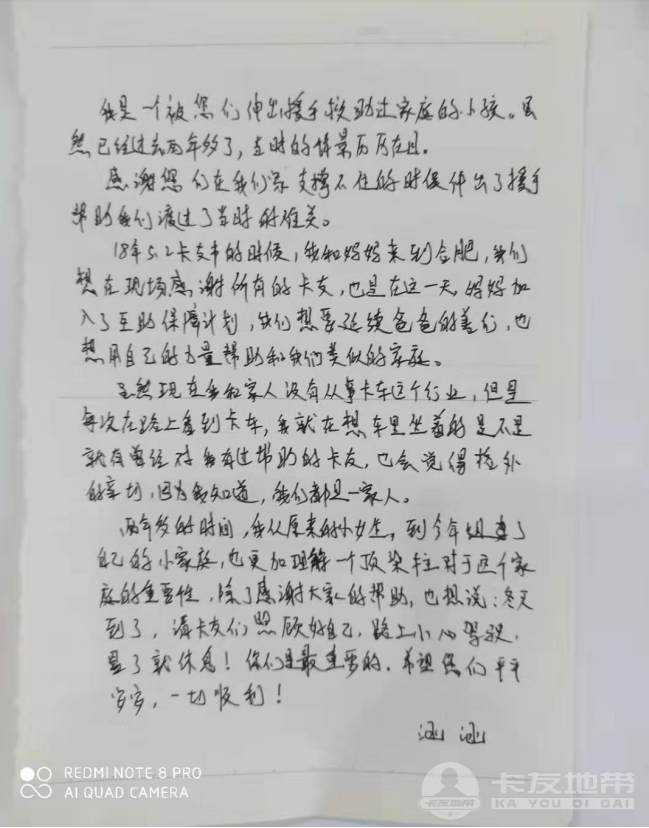 我是一个被您们伸出援手救助过家庭的小孩。虽
然已经过去两年多了，当时的情景历历在目。
感谢您们在我们家支撑不住的时候伸出了援手
帮助我们渡过了当时的难关。
18年5.2卡友节的时候，我和妈妈来到合肥，我们
想在现场感谢所有的卡友，也是在这一天，妈妈加
入了互助保障计划，我们想要延续爸爸的善行，也
想用自己的力量帮助和我们类似的家庭。
虽然现在我和家人没有从事卡车这个行业，但是
每次在路上看到卡车，我就在想车里坐着的是不是
就有曾经对我有过帮助的卡友，也会觉得格外
的亲切，因为我知道，我们都是一家人。
两年多的时间，我从原来的小女生，到今年组建了
自己的小家庭，也更加理解一个顶梁柱对于这个家
庭的重要性，除了感谢大家的帮助，也想说：冬天
到了，请卡友们照顾好自己，路上小心驾驶，
累了就休息！你们是最重要的，希望您们平平
安安，一切顺利！
涵涵
REDMI NOTE 8 PRO
AI QUAD CAMERA
卡友地带
卡友地带
KA YOU DI DAI